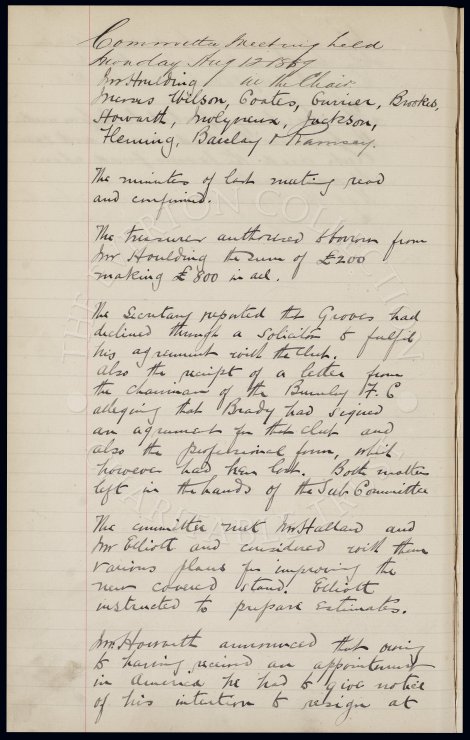 Committee Meeting held
Monday Aug 12 1889
Mr Houlding in the Chair.
Messrs Wilson, Coates, Currier, Brookes,
Howarth, Molyneux, Jackson,
Fleming, Barclay & Ramsay.
The minutes of last meeting read
and confirmed.
The treasurer authorised to borrow from
Mr Houlding the sum of £200
making £800 in all.
The Secretary reported that Groves had
declined through a Solicitor to fulfil
his agreement with the club.
Also the receipt of a letter from
the chairman of the Burnley F.C
alleging that Brady had signed
an agreement for that club and
also the professional form, which
however had been lost. Both matters
left in the hands of the Sub Committee
The committee met Mr Hallard and
Mr Elliott and considered with them
various plans for improving the
new covered stand. Elliott
instructed to prepare estimates.
Mr Howarth announced that owing
to having received an appointment
in America he had to give notice
of his intention to resign at
THE EVERTON COLLECTION
CHARITABLE TRUST